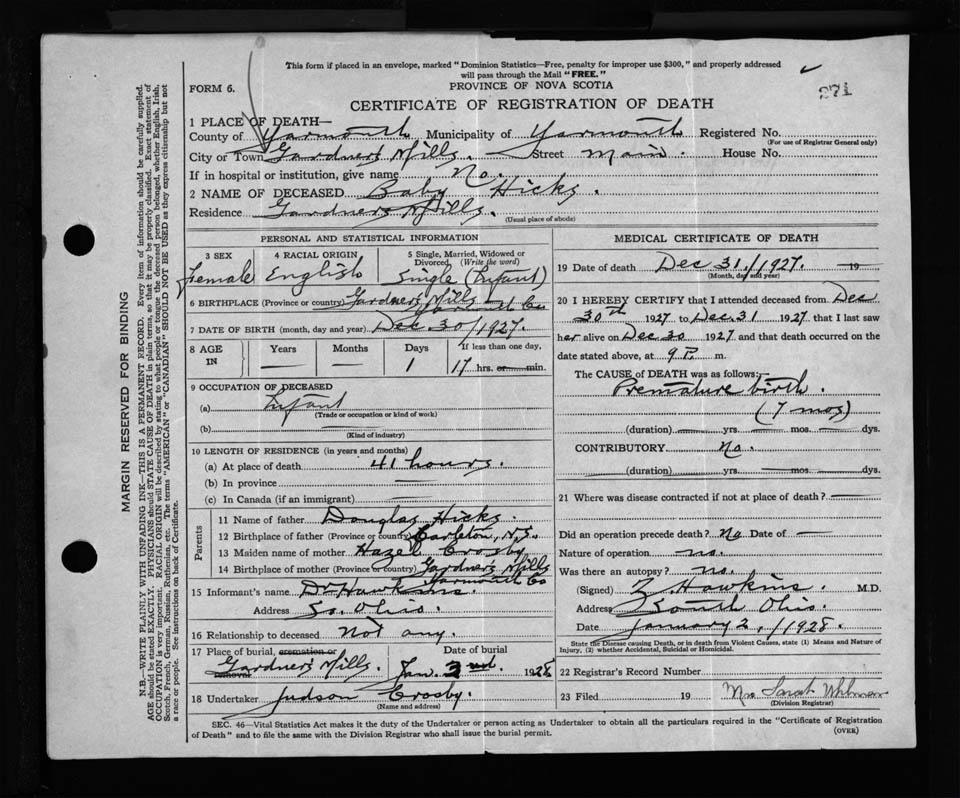 This form if placed in an envelope, marked "Dominion Statistics—Free, penalty for improper use $300," and properly addressed
will pass through the Mail "FREE."
FORM 6.
PROVINCE OF NOVA SCOTIA
271
CERTIFICATE OF REGISTRATION OF DEATH
1 PLACE OF DEATH—
County of Yarmouth Municipality of Yarmouth Registered No.
(For use of Registrar General only)
City or Town Gardner's Mills. Street Main. House No.
If in hospital or institution, give name No.
2 NAME OF DECEASED Baby Hicks.
Residence Gardner's Mills.
(Usual place of abode)
PERSONAL AND STATISTICAL INFORMATION
3 SEX 4 RACIAL ORIGIN 5 Single, Married, Widowed or Divorced, (Write the word)
Female English Single (Infant)
6 BIRTHPLACE (Province or country) Gardner's Mills
Yarmouth Co
7 DATE OF BIRTH (month, day and year) Dec 30/1927.
8 AGE IN Years Months Days If less than one day,
— — 1 17 hrs. or min.
9 OCCUPATION OF DECEASED
(a) Infant
(Trade or occupation or kind of work)
(b) —
(Kind of industry)
10 LENGTH OF RESIDENCE (in years and months)
(a) At place of death 41 hours.
(b) In province —
(c) In Canada (if an immigrant) —
Parents
11 Name of father Douglas Hicks.
12 Birthplace of father (Province or country) Carleton, N.S.
13 Maiden name of mother Hazel Crosby
14 Birthplace of mother (Province or country) Gardner's Mills
Yarmouth Co
15 Informant's name Dr Hawkins.
Address So. Ohio.
16 Relationship to deceased Not any.
17 Place of burial, cremation or removal Date of burial
Gardner's Mills. Jan. 2nd. 1928
18 Undertaker Judson Crosby.
(Name and address)
MEDICAL CERTIFICATE OF DEATH
19 Date of death Dec 31/1927. 19
(Month, day and year)
20 I HEREBY CERTIFY that I attended deceased from Dec
30th 1927 to Dec. 31 1927 that I last saw
her alive on Dec 30 1927 and that death occurred on the
date stated above, at 9 P. m.
The CAUSE OF DEATH was as follows:—
Premature birth.
(7 mos)
(duration) — yrs. — mos. — dys.
CONTRIBUTORY No.
(duration) — yrs. — mos. — dys.
21 Where was disease contracted if not at place of death? —
Did an operation precede death? No Date of —
Nature of operation no.
Was there an autopsy? no.
(Signed) Z Hawkins. M.D.
Address South Ohio.
Date January 2,/1928.
State the Disease causing Death, or in death from Violent Causes, state (1) Means and Nature of
Injury, (2) whether Accidental, Suicidal or Homicidal.
22 Registrar's Record Number
23 Filed 19 Mrs Sarah
(Division Registrar)
SEC. 46—Vital Statistics Act makes it the duty of the Undertaker or person acting as Undertaker to obtain all the particulars required in the "Certificate of Registration
of Death" and to file the same with the Division Registrar who shall issue the burial permit.
(OVER)
MARGIN RESERVED FOR BINDING
N.B.—WRITE PLAINLY WITH UNFADING INK—THIS IS A PERMANENT RECORD. Every item of information should be carefully supplied.
AGE should be stated EXACTLY. PHYSICIANS should STATE CAUSE OF DEATH in plain terms, so that it may be properly classified. Exact statement of
OCCUPATION is very important. RACIAL ORIGIN will be described by stating to what people or tongue the deceased person belonged, whether English, Irish,
Scotch, French, German, Russian, Ruthenian, etc. The terms "AMERICAN" or "CANADIAN" SHOULD NOT BE USED as they express citizenship but not
a race or people. See instructions on back of Certificate.